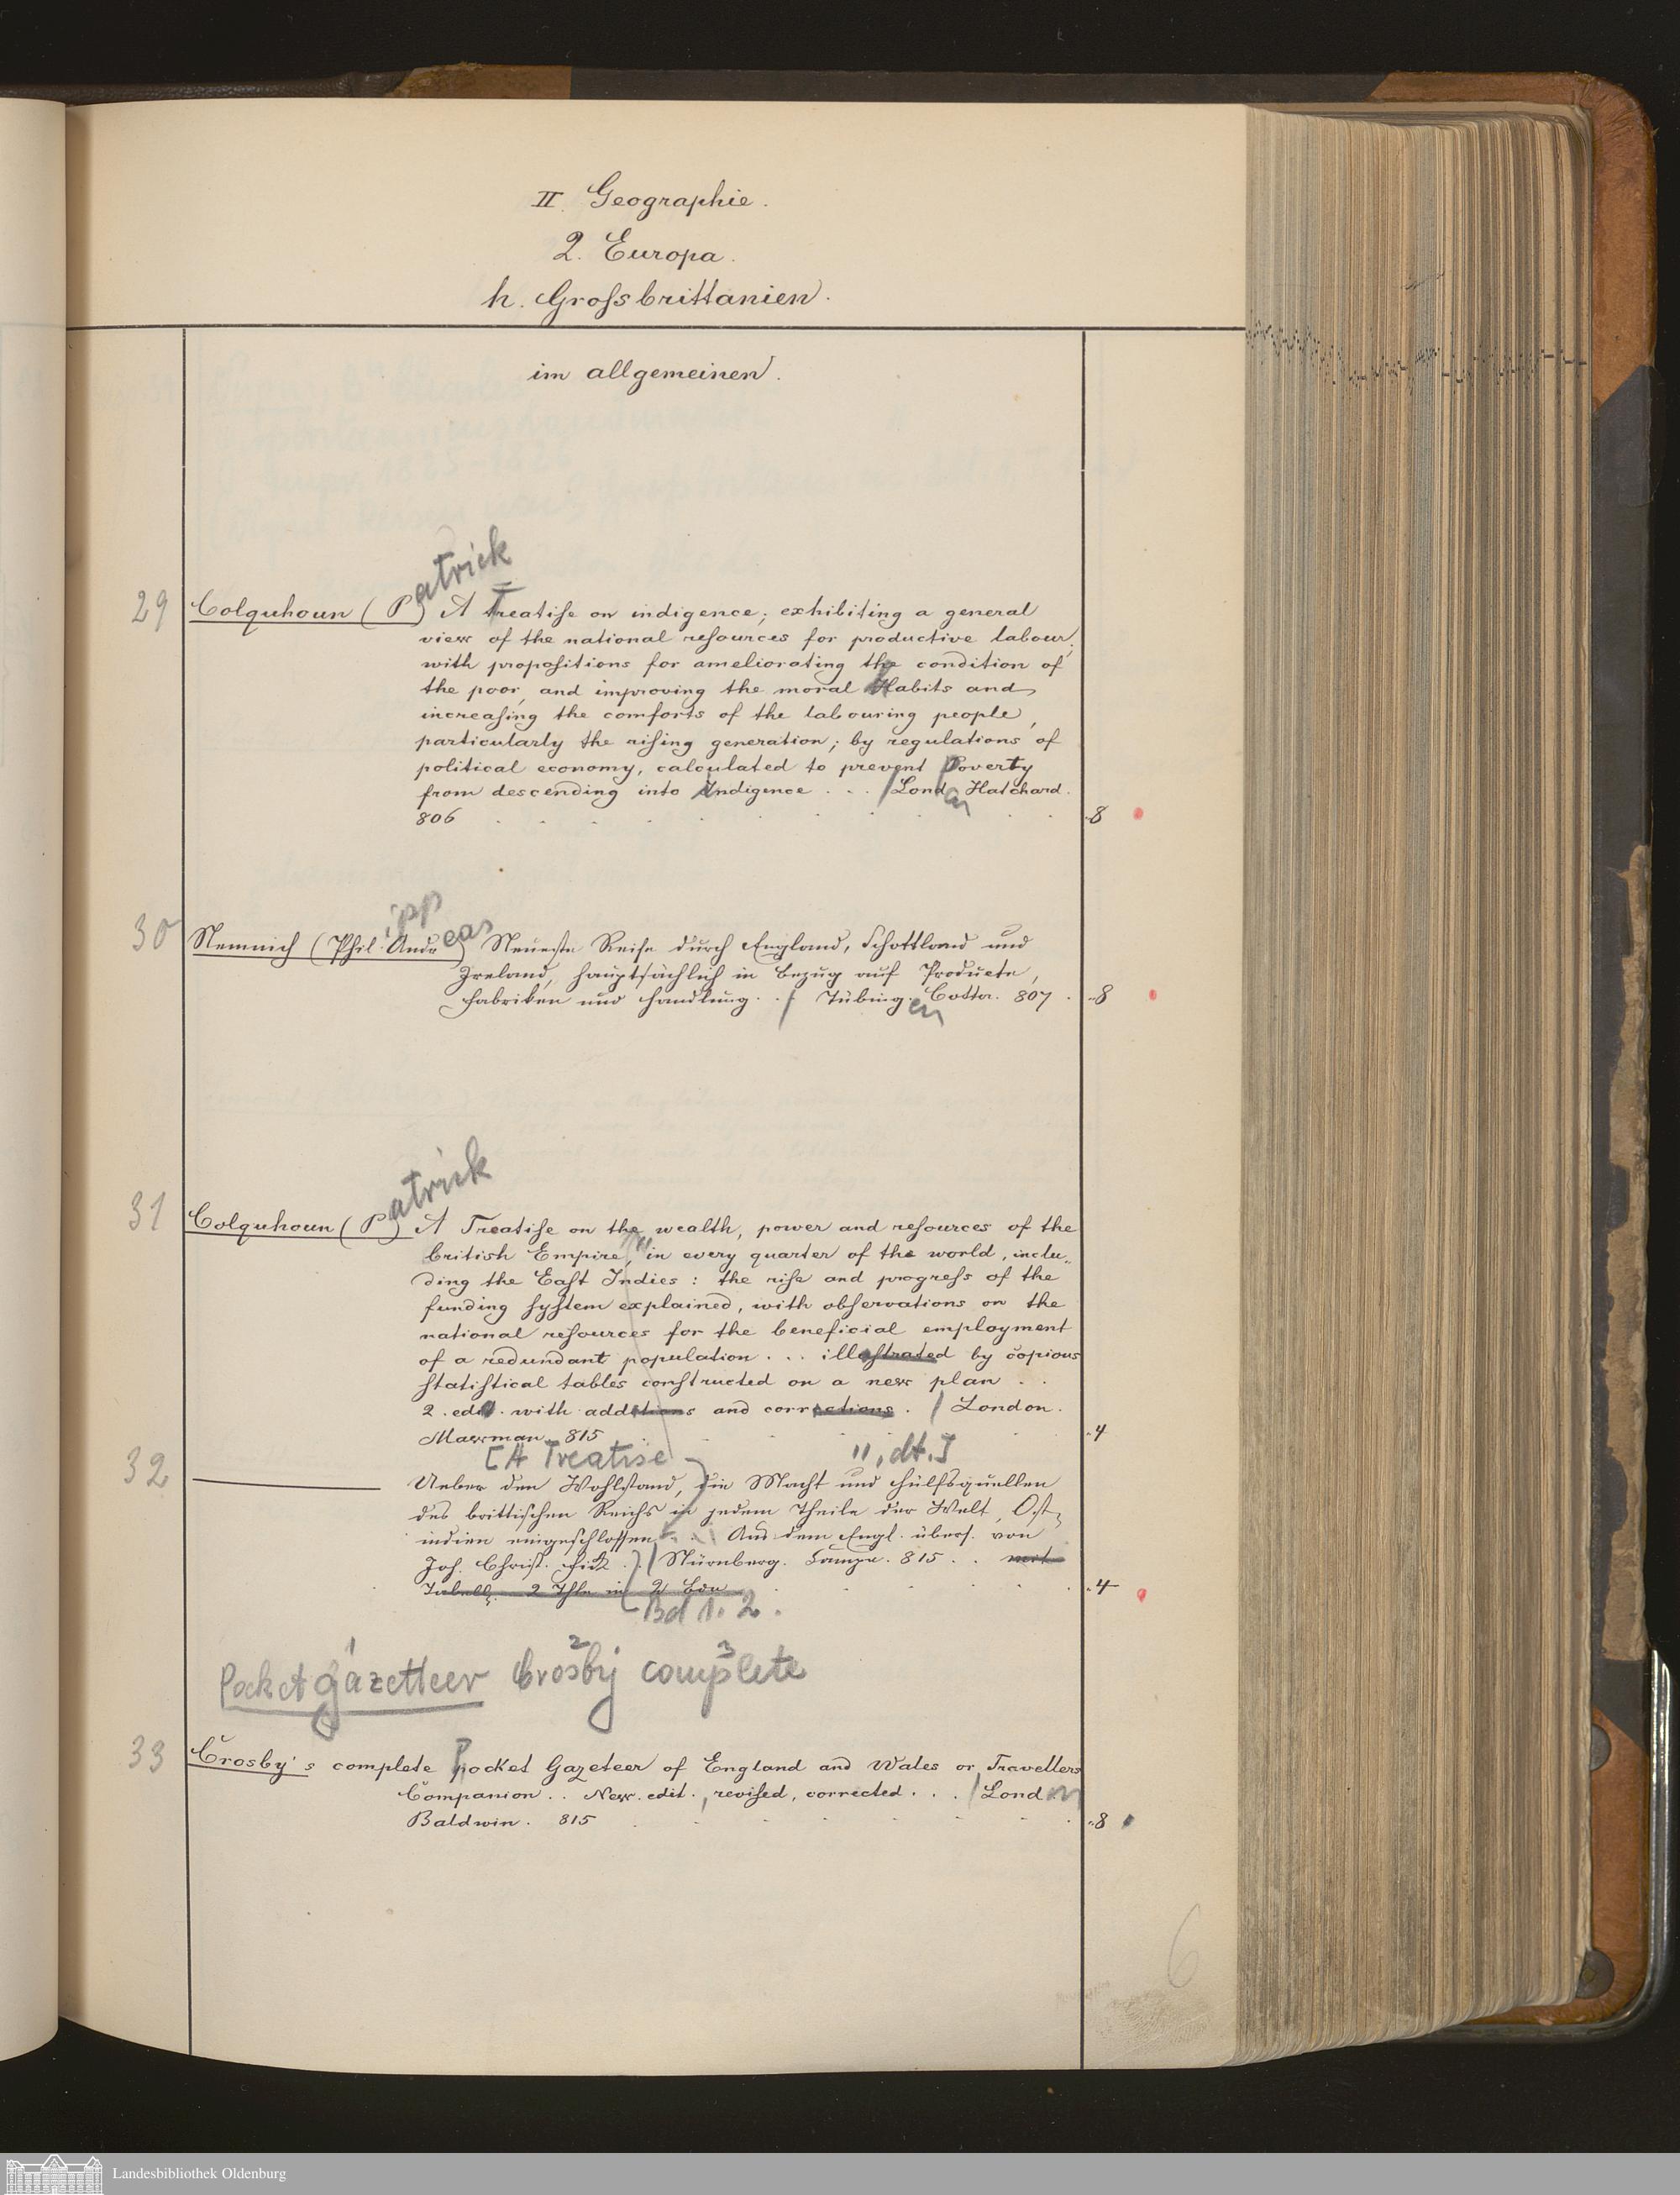 II. Geographie.
2. Europa.
h. Grossbrittanien.
im allgemeinen.
atrick
29 Colquhoun (P) A Treatise on indigence; exhibiting a general
view of the national resources for productive labour;
with propositions for ameliorating the condition of
the poor, and improving the moral Habits and
increasing the comforts of the labouring people,
particularly the rising generation; by regulations of
political economy, calculated to prevent Poverty
from descending into Indigence . . . / Lond on Hatchard.
806 8
ipp
30 Nemnich (Phil. Andr eas) Neueste Reise durch England, Schottland und
Ireland, hauptsächlich in Bezug auf Producte,
Fabriken und Handlung. . / Tübing. en Cotta. 807. 8
atrick
31 Colquhoun (P) A Treatise on the wealth, power and resources of the
british Empire, in every quarter of the world, inclu„
ding the East Indies: the rise and progress of the
funding system explained, with observations on the
national resources for the beneficial employment
of a redundant population . . . illustrated by copious
statistical tables constructed on a new plan . .
2. edit. with additions and corrections. / London.
Mawman. 815 4
[A Treatise ", dt.]
32 Ueber den Wohlstand, die Macht und Hülfsquellen
des brittischen Reichs in jedem Theile der Welt, Ost-
indien eingeschlossen . . Aus dem Engl. übers. von
Joh. Christ. Fick . / Nürnberg. Campe. 815 . . mit
Tabell. 2 Thle in 2 Bdn 4
Bd 1. 2.
1 2 3
Pocket gazetteer Crosby complete
33 Crosby's complete Pocket Gazeteer of England and Wales or Travellers
Companion . . New. edit., revised, corrected . . . / Lond on
Baldwin. 815 8
6
Landesbibliothek Oldenburg